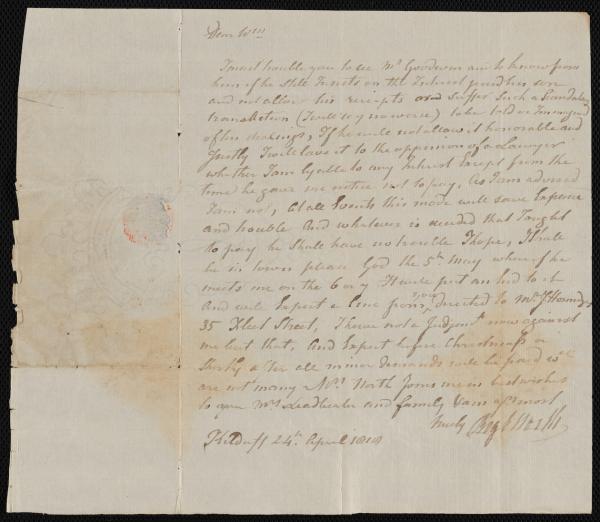 Dear Wm
I must trouble you to see Mr Goodwin and to know from
him if he Still Insists on the Interest paid his son
and not allow his receipts and Suffer Such a Scandalous
transaction (I will say no worse) to be told or Imagined
of his dealings, If he will not allow it honorable and
Justly I will leave it to the oppinion of a Lawyer
whether I am lyable to any Interest Except from the
time he gave me notice not to pay, As I am advised
I am not, At all Events this mode will save Expence
and trouble And whatever is decided that I ought
to pay he Shall have no trouble I hope, I Shall
be in town please God the 5th May where if he
meets me on the 6 or 7 I will put an End to it
And will Expect a line from you directed to Mr
35 Fleet Street, I have not a Judgmt now against
me but that, And Expect before Christmass or
Shortly after all minor demands will be paid wch
are not many Mrs North Joins me in best wishes
to you Mrs Leadbeater and family I am yrs most
truly
Kilduff 24th April 1818